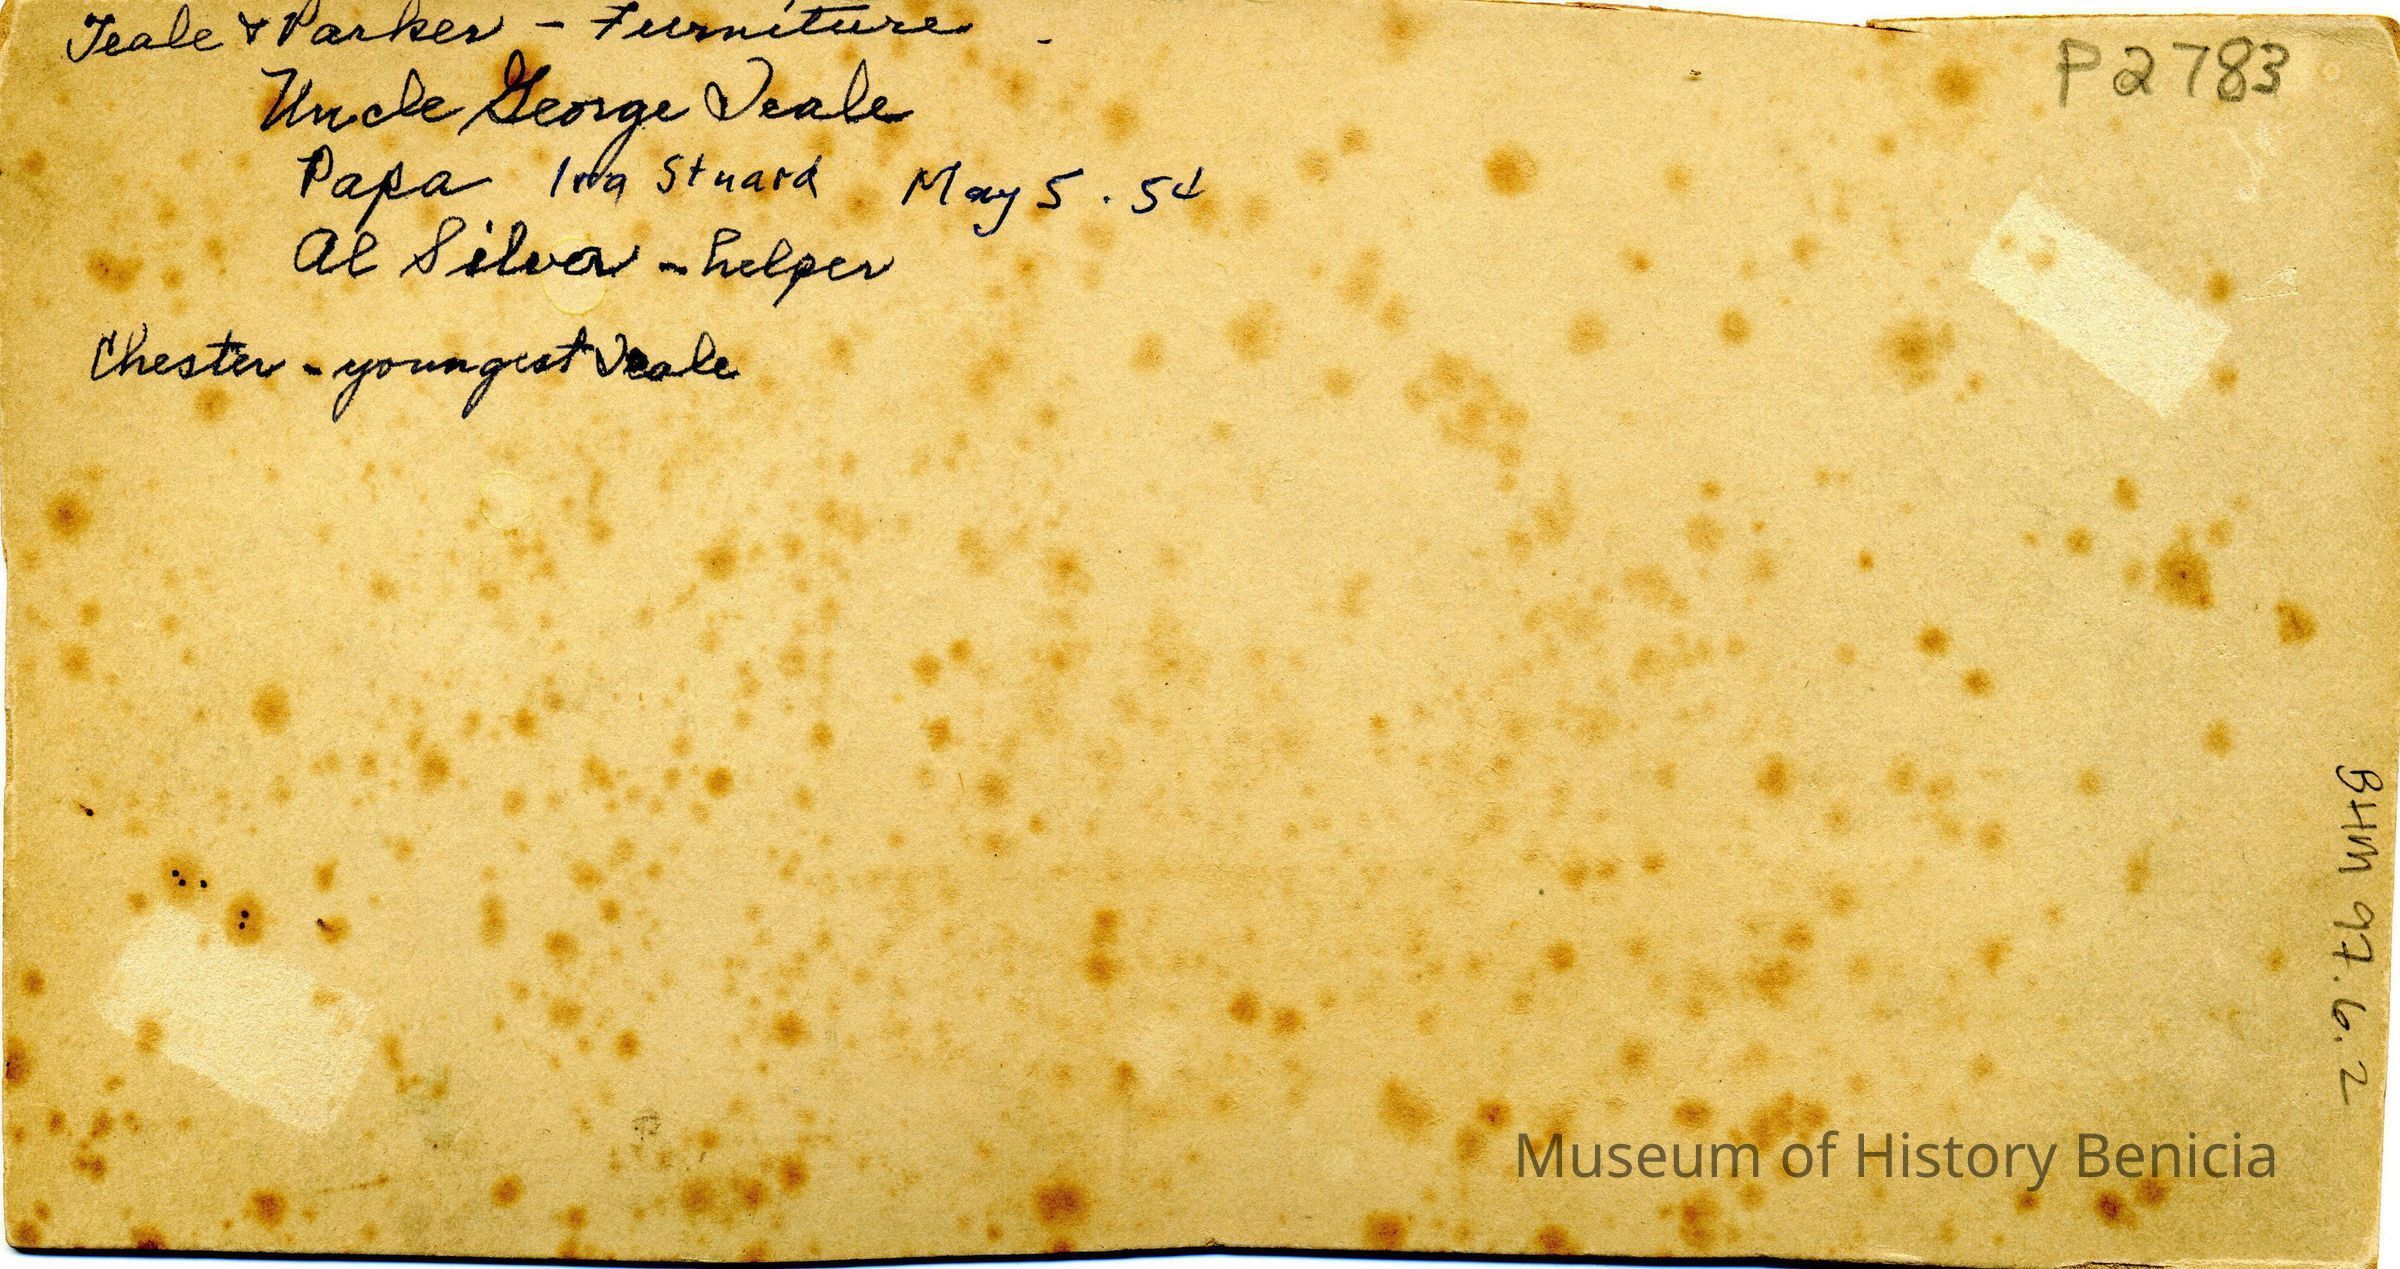 Teale & Parker - Furniture -
P2783
Uncle George Teale
Papa Ira Stuard May 5. 54
Al Silva - helper
Chester - youngest Teale
BHM 97.6.2
Museum of History Benicia